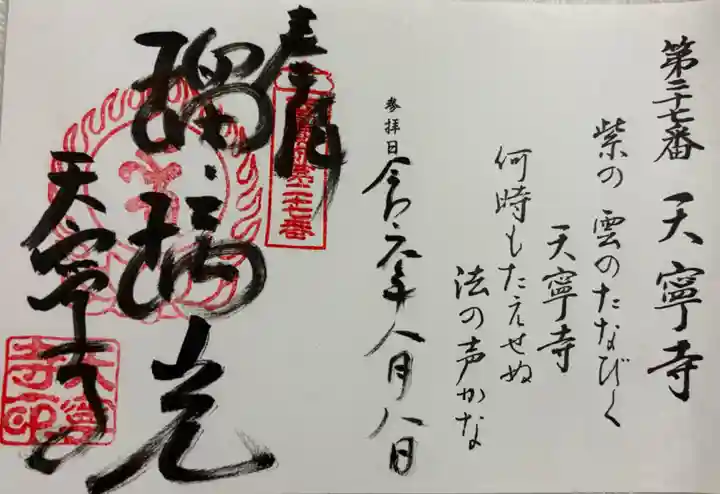 第二十七番 天寧寺
紫の 雲のたなびく
天寧寺
何時もたえせぬ
法の声かな
参拝日 令和元年八月八日
奉拝
瑠璃光
天寧寺
天寧
寺印